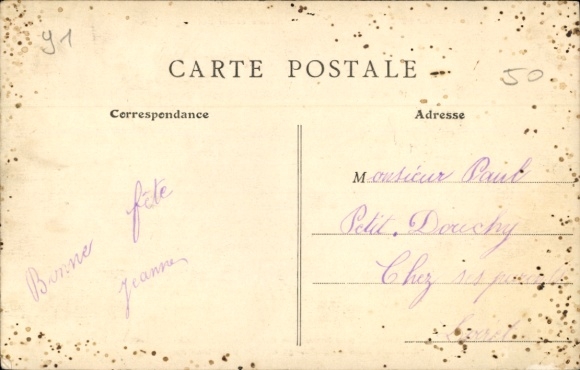 91
50
CARTE POSTALE
Correspondance
Adresse
Bonne fête
Jeanne
Monsieur Paul
Petit. Douchy
Chez ses parents
Loiret